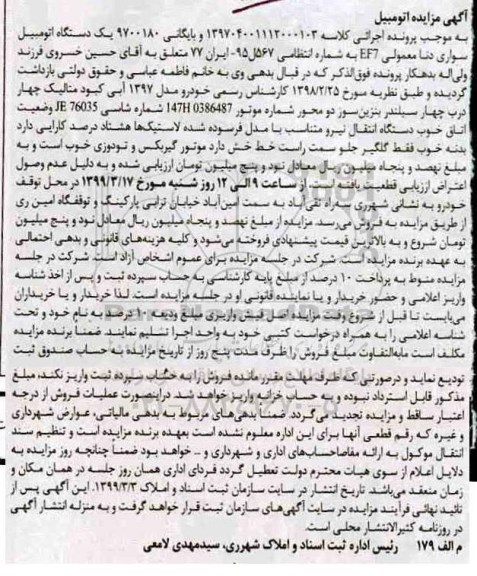 آگهی مزایده اتومبیل
به موجب پرونده اجرائی کلاسه ۱۳۹۷۰۴۰۰۱۱۱۲۰۰۰۱۰۳ و بایگانی ۹۷۰۰۱۸۰ یک دستگاه اتومبیل
سواری دنا معمولی EF7 به شماره انتظامی ۵۶۷ل۹۵- ایران ۷۷ متعلق به آقای حسین خسروی فرزند
ولی‌اله بدهکار پرونده فوق‌الذکر که در قبال بدهی وی به خانم فاطمه عباسی و حقوق دولتی بازداشت
گردیده و طبق نظریه مورخ ۱۳۹۸/۲/۲۵ کارشناس رسمی خودرو مدل ۱۳۹۷ آبی کبود متالیک چهار
درب چهار سیلندر بنزین‌سوز دو محور شماره موتور 147H 0386487 شماره شاسی JE 76035 وضعیت
اتاق خوب دستگاه انتقال نیرو متناسب با مدل فرسوده شده لاستیک‌ها هشتاد درصد کارایی دارد
بدنه خوب فقط گلگیر جلو سمت راست خط خش دارد موتور گیربکس و تودوزی خوب است و به
مبلغ نهصد و پنجاه میلیون ریال معادل نود و پنج میلیون تومان ارزیابی شده و به دلیل عدم وصول
اعتراض ارزیابی قطعیت یافته است. از ساعت ۹ الی ۱۲ روز شنبه مورخ ۱۳۹۹/۳/۱۷ در محل توقف
خودرو به نشانی شهرری سه‌راه تقی‌آباد به سمت امین‌آباد خیابان ترابی پارکینگ و توقفگاه امین ری
از طریق مزایده به فروش می‌رسد. مزایده از مبلغ نهصد و پنجاه میلیون ریال معادل نود و پنج میلیون
تومان شروع و به بالاترین قیمت پیشنهادی فروخته می‌شود و کلیه هزینه‌های قانونی و بدهی احتمالی
به عهده برنده مزایده است. شرکت در جلسه مزایده برای عموم اشخاص آزاد است. شرکت در جلسه
مزایده منوط به پرداخت ۱۰ درصد از مبلغ پایه کارشناسی به حساب سپرده ثبت و پس از اخذ شناسه
واریز اعلامی و حضور خریدار و یا نماینده قانونی او در جلسه مزایده است. لذا خریدار و یا خریداران
می‌بایست تا قبل از شروع وقت مزایده اصل فیش واریزی مبلغ ودیعه ۱۰ درصد به نام خود و تحت
شناسه اعلامی را به همراه درخواست کتبی خود به واحد اجرا تسلیم نمایند. ضمنا برنده مزایده
مکلف است مابه‌التفاوت مبلغ فروش را ظرف مدت پنج روز از تاریخ مزایده به حساب صندوق ثبت
تودیع نماید و درصورتی که ظرف مهلت مقرر مانده فروش را به حساب سپرده ثبت واریز نکند، مبلغ
مذکور قابل استرداد نبوده و به حساب خزانه واریز خواهد شد. دراینصورت عملیات فروش از درجه
اعتبار ساقط و مزایده تجدید می‌گردد. ضمناً بدهی‌های مربوط به بدهی مالیاتی، عوارض شهرداری
و غیره که رقم قطعی آنها برای این اداره معلوم نشده است بعهده برنده مزایده است و تنظیم سند
انتقال موکول به ارائه مفاصاحساب‌های اداری و شهرداری و ... خواهد بود ضمناً چنانچه روز مزایده به
دلایل اعلام از سوی هیات محترم دولت تعطیل گردد فردای اداری همان روز جلسه در همان مکان و
زمان منعقد می‌باشد. تاریخ انتشار در سایت سازمان ثبت اسناد و املاک ۱۳۹۹/۳/۳. این آگهی پس از
تائید نهائی فرآیند مزایده در سایت آگهی‌های سازمان ثبت قرار خواهد گرفت و به منزله انتشار آگهی
در روزنامه کثیرالانتشار محلی است.
م الف ۱۷۹ رئیس اداره ثبت اسناد و املاک شهرری، سیدمهدی لامعی